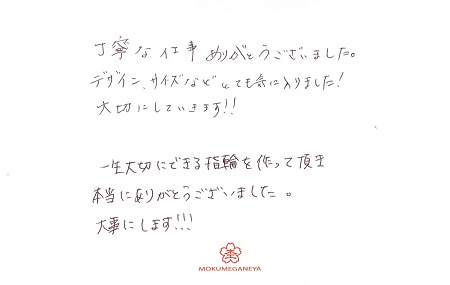 丁寧な仕事ありがとうございました。
デザイン、サイズなどとても気に入りました!
大切にしていきます!!
一生大切にできる指輪を作って頂き
本当にありがとうございました。
大事にします!!!
MOKUMEGANEYA